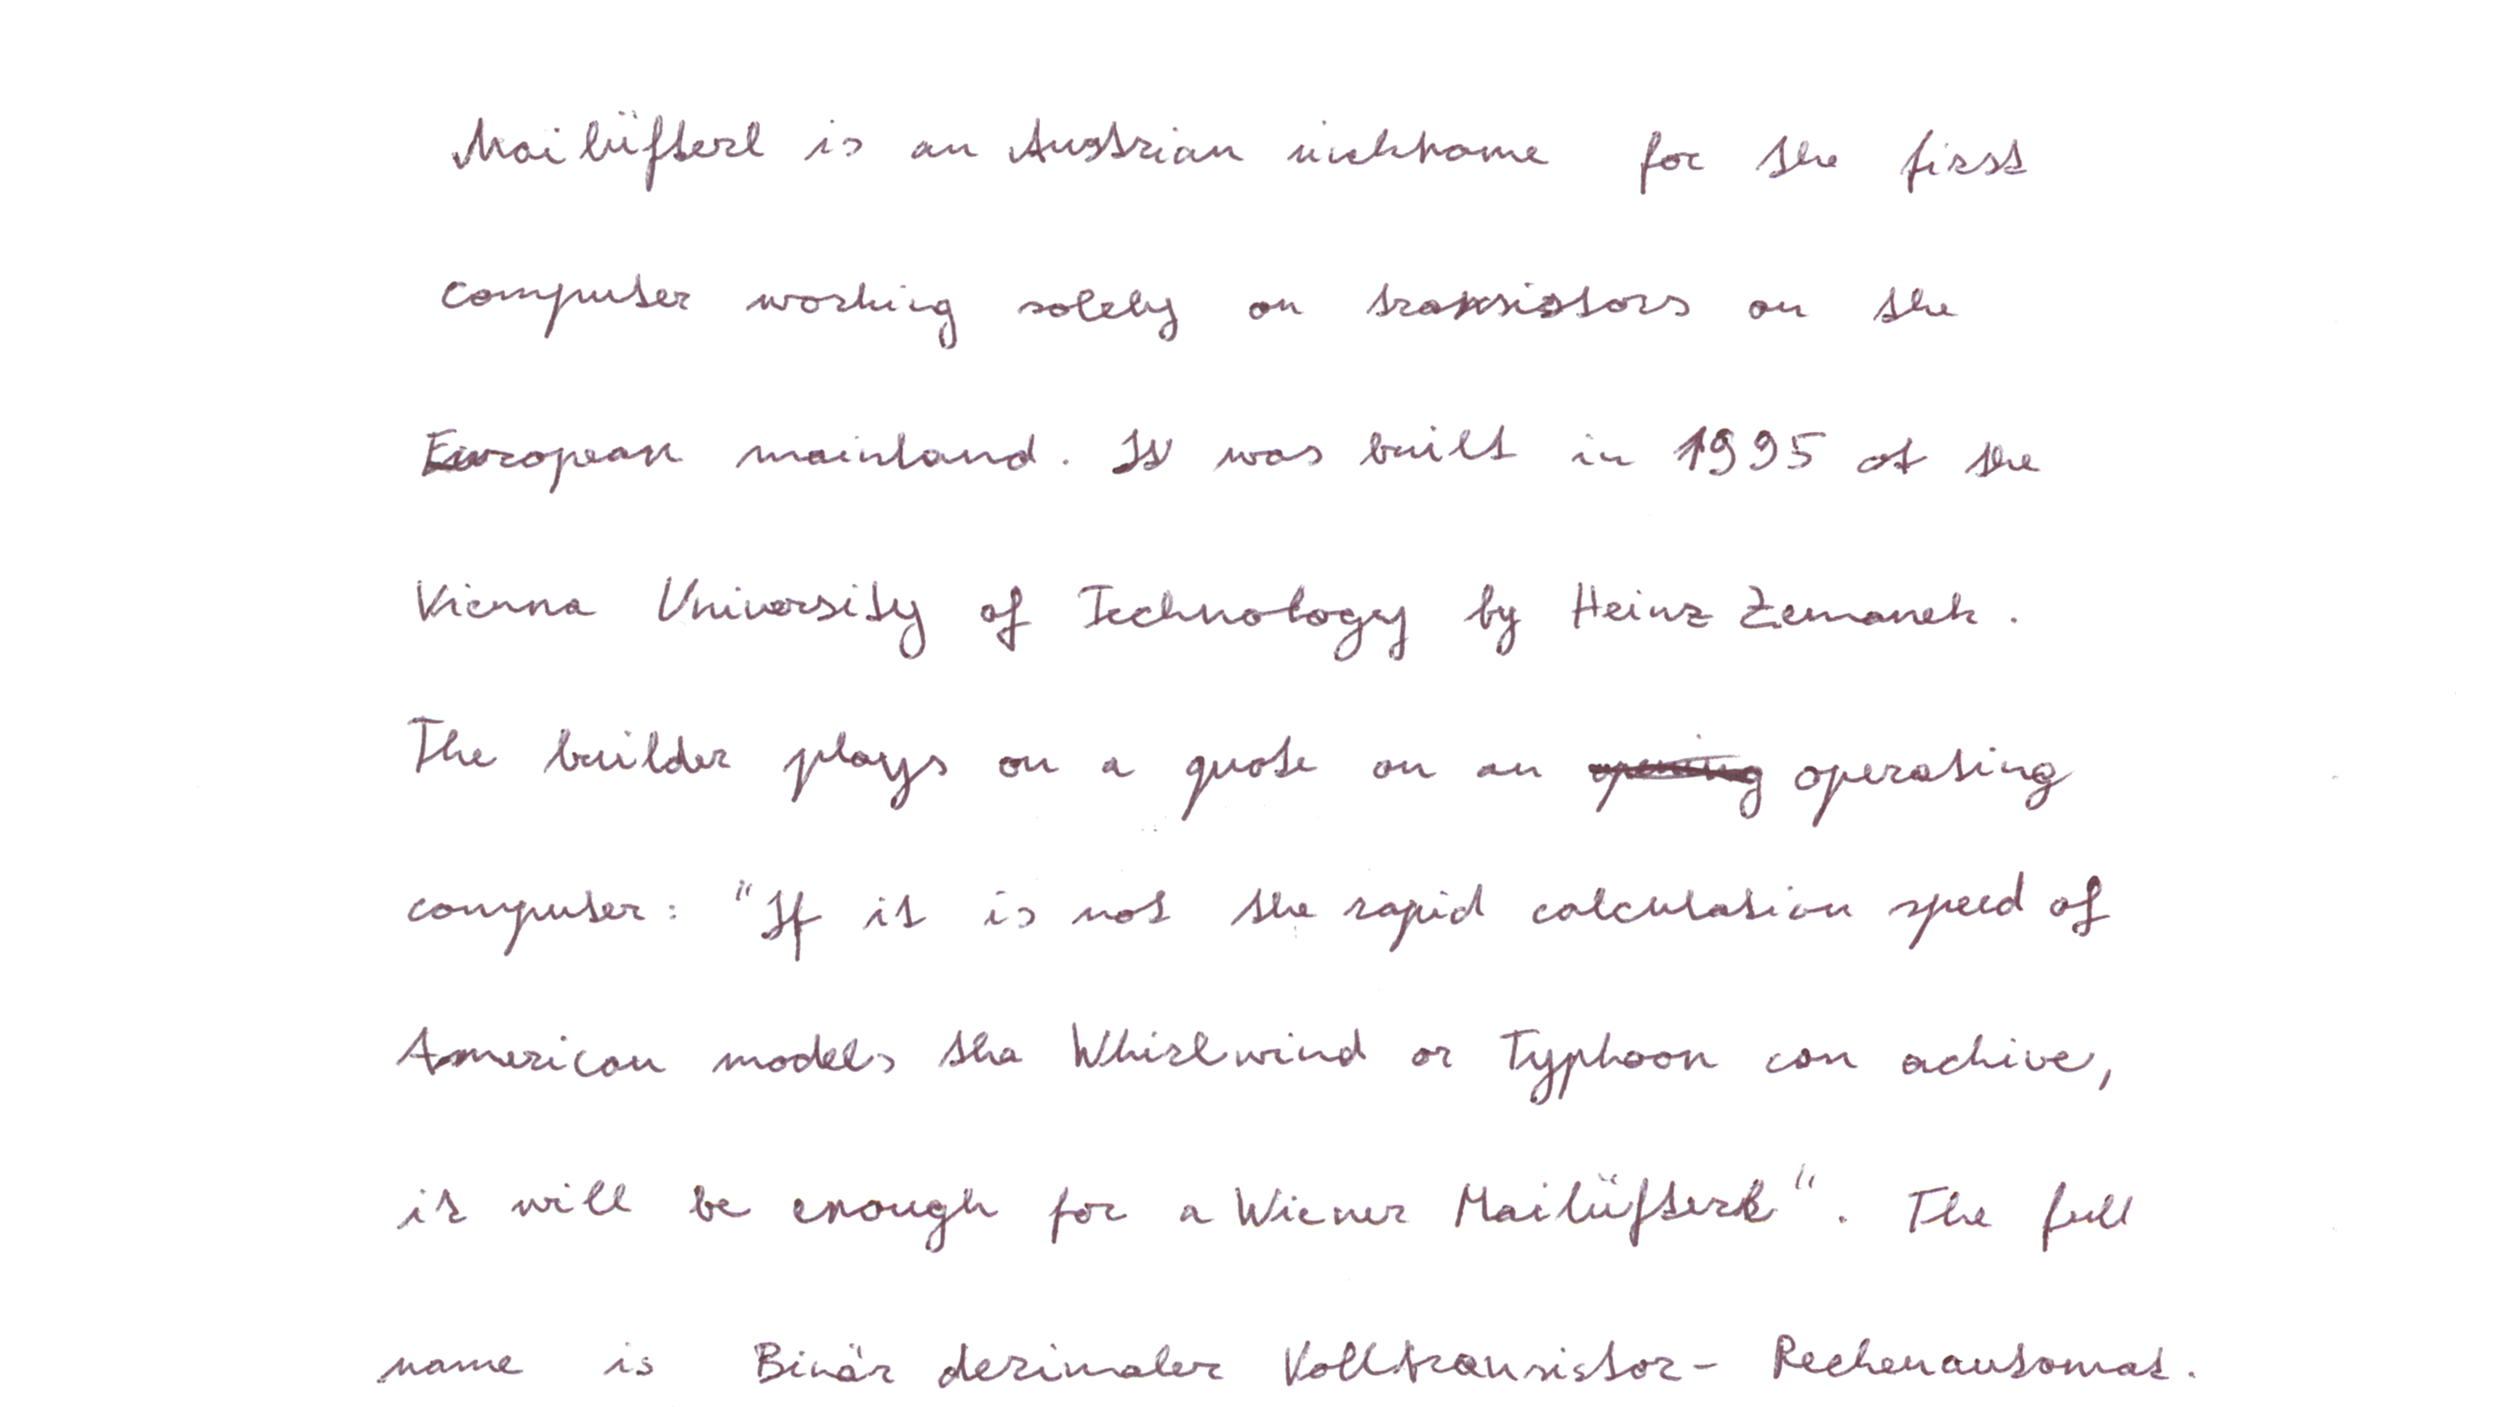 Mailüfterl is an Austrian nickname for the first
computer working solely on transistors on the
European mainland. It was built in 1995 at the
Vienna University of Technology by Heinz Zemanek.
The builder plays on a quote on an operating
computer: "If it is not the rapid calculation speed of
American models the Whirlwind or Typhoon can achive,
it will be enough for a Wiener Mailüfterl". The full
name is Binär dezimaler Volltransistor- Rechenautomat.